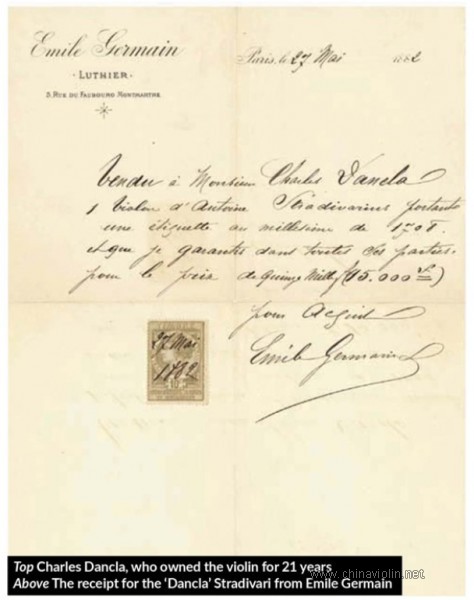 Emile Germain
· LUTHIER ·
3, RUE DU FAUBOURG MONTMARTRE
Paris, le 27 Mai 1882
Vendu à Monsieur Charles Dancla
1 Violon d'Antoine Stradivarius portant
une étiquette au millésime de 1708
et que je garantis dans toutes ses parties.
pour le prix de quinze Mille (15.000 fr)
pour Acquit
Emile Germain
27 Mai
1882
Top Charles Dancla, who owned the violin for 21 years
Above The receipt for the ‘Dancla’ Stradivari from Emile Germain
www.chinaviolin.net